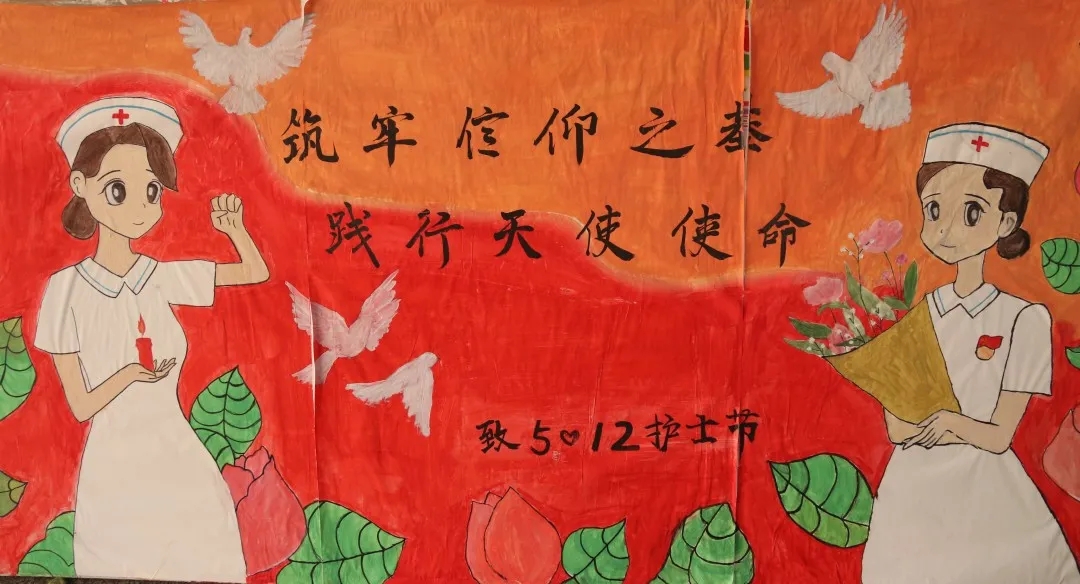 筑牢信仰之基
践行天使使命
致5♥12护士节